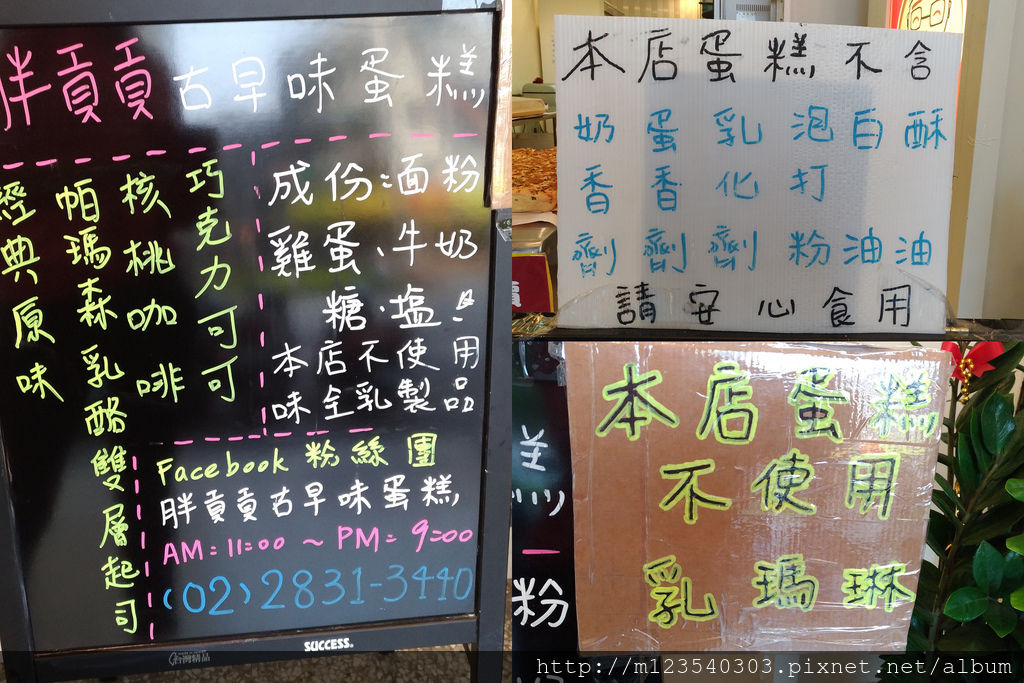 胖貢貢古早味蛋糕
經典原味
帕瑪森乳酪雙層起司
核桃咖啡
巧克力可可
成份:面粉
雞蛋、牛奶
糖、塩
本店不使用
味全乳製品
Facebook 粉絲團
胖貢貢古早味蛋糕
AM=11:00 ~ PM=9:00
(02)2831-3440
SUCCESS®
本店蛋糕不含
奶香劑
蛋香劑
乳化劑
泡打粉
白油
酥油
請安心食用
本店蛋糕
不使用
乳瑪琳
粉
http://m123540303.pixnet.net/album